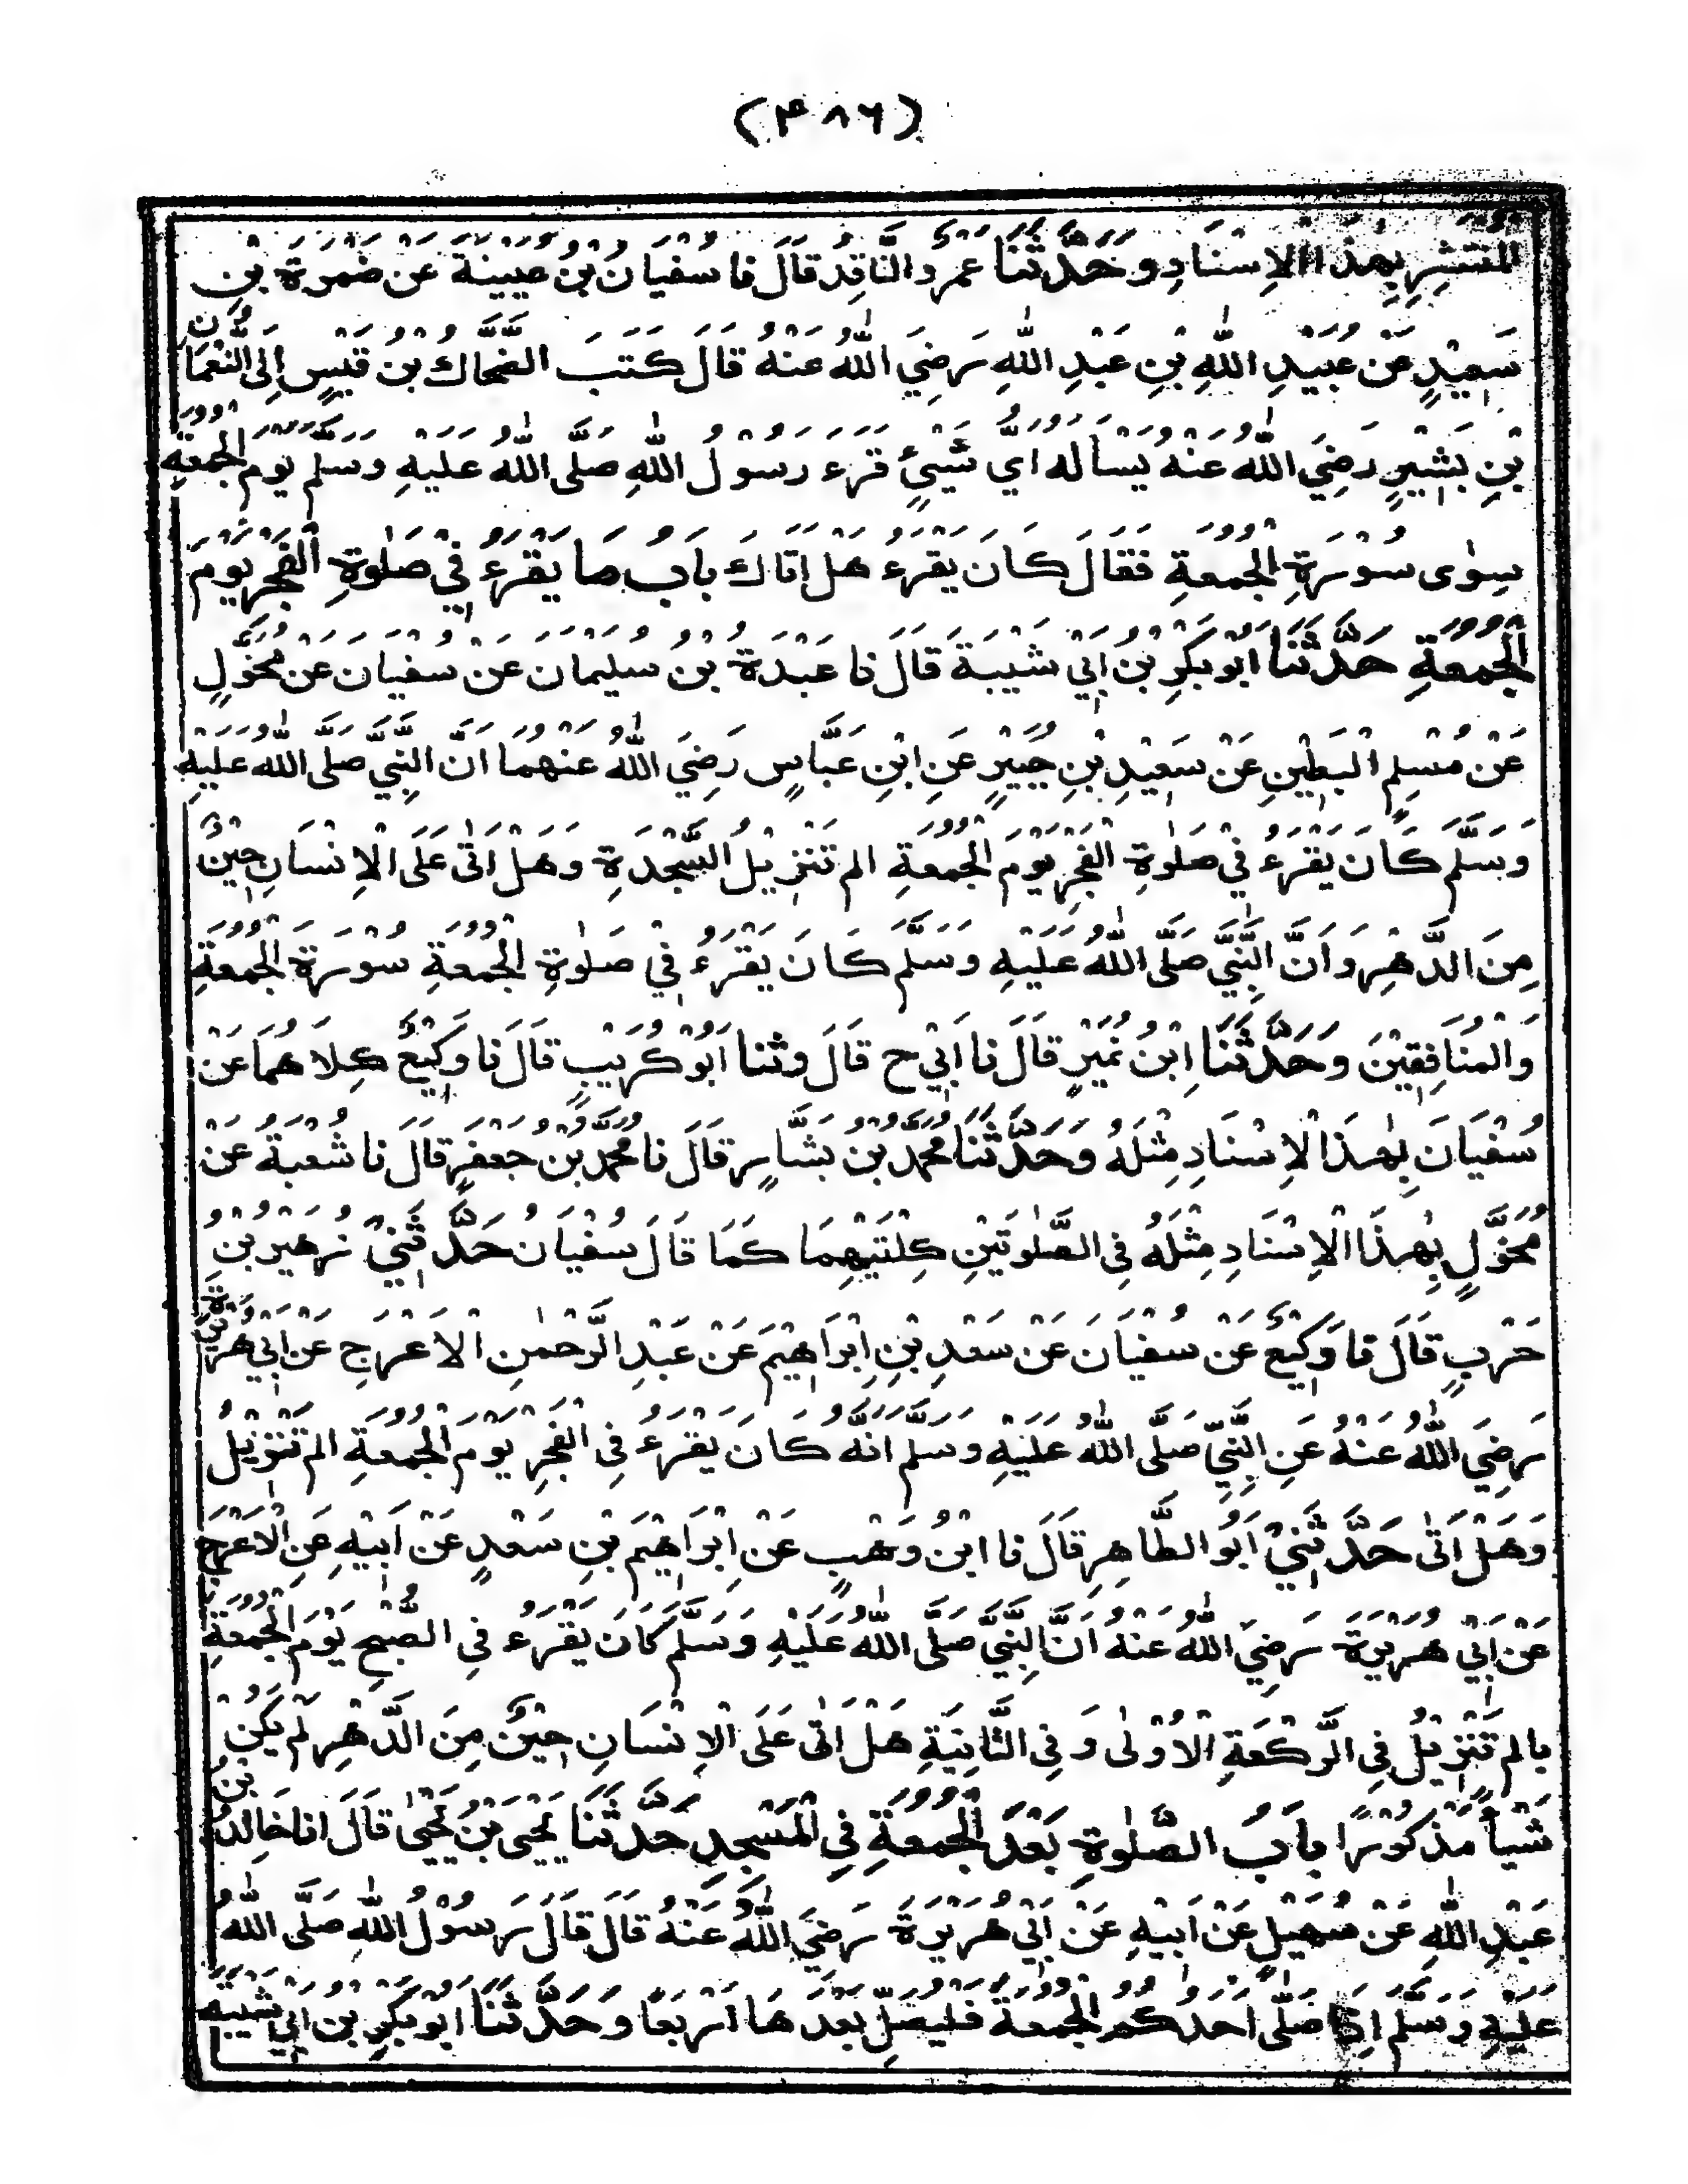 (۴۸۶)
المُنتَشِرِ بِهٰذَا الْاِسْنَادِ وَحَدَّثَنَا عَمْرُو النَّاقِدُ قَالَ نَا سُفْيَانُ بْنُ عُيَيْنَةَ عَنْ ضَمْرَةَ بْنِ
سَعِيْدٍ عَنْ عُبَيْدِ اللّٰهِ بْنِ عَبْدِ اللّٰهِ رَضِيَ اللّٰهُ عَنْهُ قَالَ كَتَبَ الضَّحَّاكُ بْنُ قَيْسٍ اِلَى النُّعْمَانِ
بْنِ بَشِيْرٍ رَضِيَ اللّٰهُ عَنْهُ يَسْأَلُهُ اَيَّ شَيْئٍ قَرَءَ رَسُوْلُ اللّٰهِ صَلَّى اللّٰهُ عَلَيْهِ وَسَلَّمَ يَوْمَ الْجُمُعَةِ
سِوٰى سُوْرَةِ الْجُمُعَةِ فَقَالَ كَانَ يَقْرَءُ هَلْ اَتَاكَ بَابُ مَا يَقْرَءُ فِيْ صَلٰوةِ الْفَجْرِ يَوْمَ
الْجُمُعَةِ حَدَّثَنَا اَبُوْ بَكْرِ بْنُ اَبِيْ شَيْبَةَ قَالَ نَا عَبْدَةُ بْنُ سُلَيْمَانَ عَنْ سُفْيَانَ عَنْ مُخَوَّلٍ
عَنْ مُسْلِمٍ الْبَطِيْنِ عَنْ سَعِيْدِ بْنِ جُبَيْرٍ عَنِ ابْنِ عَبَّاسٍ رَضِيَ اللّٰهُ عَنْهُمَا اَنَّ النَّبِيَّ صَلَّى اللّٰهُ عَلَيْهِ
وَسَلَّمَ كَانَ يَقْرَءُ فِيْ صَلٰوةِ الْفَجْرِ يَوْمَ الْجُمُعَةِ الم تَنْزِيْلُ السَّجْدَةِ وَهَلْ اَتٰى عَلَى الْاِنْسَانِ حِيْنٌ
مِنَ الدَّهْرِ وَاَنَّ النَّبِيَّ صَلَّى اللّٰهُ عَلَيْهِ وَسَلَّمَ كَانَ يَقْرَءُ فِيْ صَلٰوةِ الْجُمُعَةِ سُوْرَةَ الْجُمُعَةِ
وَالْمُنَافِقِيْنَ وَحَدَّثَنَا ابْنُ نُمَيْرٍ قَالَ نَا اَبِيْ ح قَالَ وثنا اَبُوْ كُرَيْبٍ قَالَ نَا وَكِيْعٌ كِلَاهُمَا عَنْ
سُفْيَانَ بِهٰذَا الْاِسْنَادِ مِثْلَهُ وَحَدَّثَنَا مُحَمَّدُ بْنُ بَشَّارٍ قَالَ نَا مُحَمَّدُ بْنُ جَعْفَرٍ قَالَ نَا شُعْبَةُ عَنْ
مُخَوَّلٍ بِهٰذَا الْاِسْنَادِ مِثْلَهُ فِي الصَّلٰوتَيْنِ كِلْتَيْهِمَا كَمَا قَالَ سُفْيَانُ حَدَّثَنِيْ زُهَيْرُ بْنُ
حَرْبٍ قَالَ نَا وَكِيْعٌ عَنْ سُفْيَانَ عَنْ سَعْدِ بْنِ اِبْرَاهِيْمَ عَنْ عَبْدِ الرَّحْمٰنِ الْاَعْرَجِ عَنْ اَبِيْ هُرَيْرَةَ
رَضِيَ اللّٰهُ عَنْهُ عَنِ النَّبِيِّ صَلَّى اللّٰهُ عَلَيْهِ وَسَلَّمَ اَنَّهُ كَانَ يَقْرَءُ فِي الْفَجْرِ يَوْمَ الْجُمُعَةِ الم تَنْزِيْلُ
وَهَلْ اَتٰى حَدَّثَنِيْ اَبُو الطَّاهِرِ قَالَ نَا ابْنُ وَهْبٍ عَنْ اِبْرَاهِيْمَ بْنِ سَعْدٍ عَنْ اَبِيْهِ عَنِ الْاَعْرَجِ
عَنْ اَبِيْ هُرَيْرَةَ رَضِيَ اللّٰهُ عَنْهُ اَنَّ النَّبِيَّ صَلَّى اللّٰهُ عَلَيْهِ وَسَلَّمَ كَانَ يَقْرَءُ فِي الصُّبْحِ يَوْمَ الْجُمُعَةِ
بالم تَنْزِيْلُ فِي الرَّكْعَةِ الْاُوْلٰى وَفِي الثَّانِيَةِ هَلْ اَتٰى عَلَى الْاِنْسَانِ حِيْنٌ مِنَ الدَّهْرِ لَمْ يَكُنْ
شَيْأً مَذْكُوْرًا بَابُ الصَّلٰوةِ بَعْدَ الْجُمُعَةِ فِي الْمَسْجِدِ حَدَّثَنَا يَحْيَى بْنُ يَحْيٰى قَالَ انا خَالِدُ بْنُ
عَبْدِ اللّٰهِ عَنْ سُهَيْلٍ عَنْ اَبِيْهِ عَنْ اَبِيْ هُرَيْرَةَ رَضِيَ اللّٰهُ عَنْهُ قَالَ قَالَ رَسُوْلُ اللّٰهِ صَلَّى اللّٰهُ
عَلَيْهِ وَسَلَّمَ اِذَا صَلَّى اَحَدُكُمُ الْجُمُعَةَ فَلْيُصَلِّ بَعْدَهَا اَرْبَعًا وَحَدَّثَنَا اَبُوْ بَكْرِ بْنُ اَبِيْ شَيْبَةَ